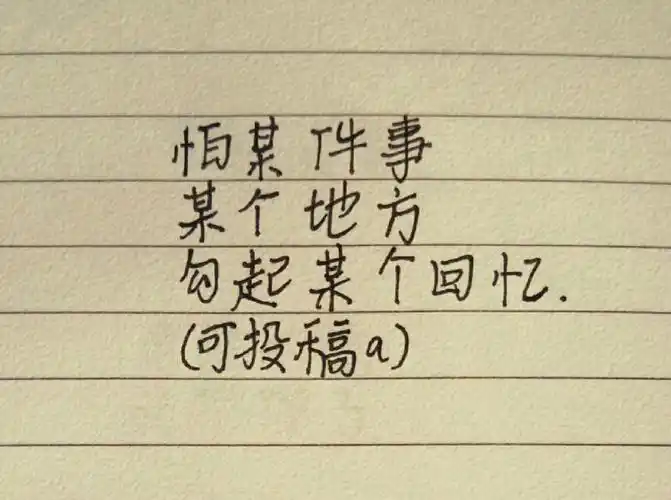 怕某件事
某个地方
勾起某个回忆.
(可投稿a)